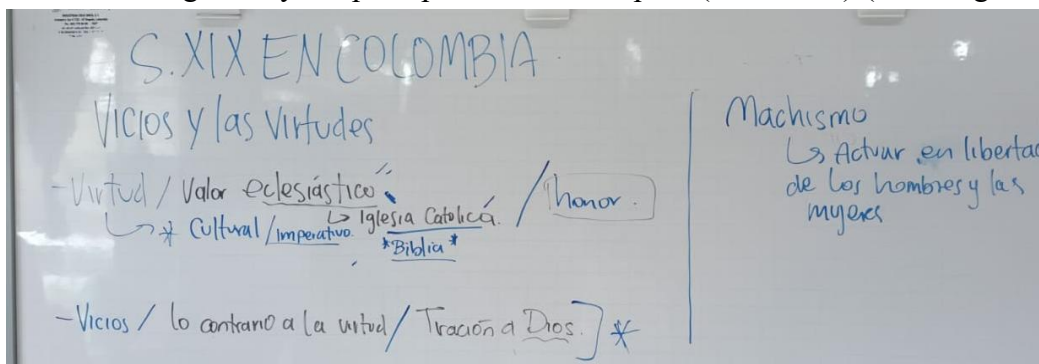 S. XIX EN COLOMBIA.
Vicios y las Virtudes
- Virtud / Valor eclesiástico / honor.
↳ Iglesia Católica.
↳ * Cultural / Imperativo. *Biblia*
- Vicios / lo contrario a la virtud / Tración a Dios.] *
Machismo
↳ Actuar en libertad
de los hombres y las
mujeres